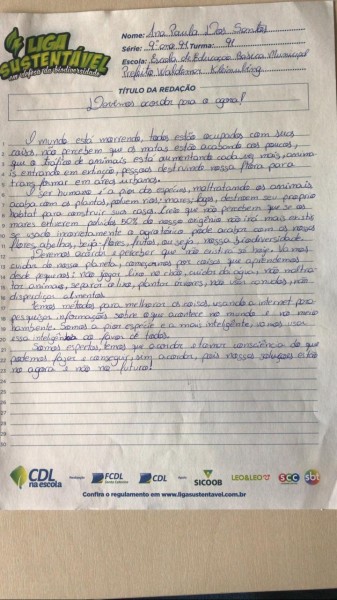 LIGA SUSTENTÁVEL
em defesa da biodiversidade
Nome: Ana Paula Dos Santos
Série: 9º ano Turma: 91
Escola: Escola de Educação Básica Municipal
Prefeito Waldemar Kleinubing
TÍTULO DA REDAÇÃO
Devemos acordar para o agora!
O mundo está morrendo, todos estão ocupados com suas
coisas, não percebem que as matas estão acabando aos poucos,
que o tráfico de animais está aumentando cada vez mais, anima
is entrando em extinção, pessoas destruindo nossa flora para
transformar em área urbana.
O ser humano é a pior das espécies, maltratando os animais
acaba com as plantas, poluem rios, mares, lagos, destroem seu próprio
habitat para construir suas casas. Creio que não percebem que se os
mares estiverem poluídos 50% do nosso oxigênio não irá mais existir
se usado incorretamente o agrotóxico pode acabar com as nossas
flores, abelhas, beija-flores, frutas, ou seja, nossa biodiversidade.
Devemos acordar e perceber que não existirá só hoje. Vamos
cuidar do nosso planeta, começarmos por coisas que aprendemos
desde pequenos: não jogar lixo no chão, cuidar da água, não maltra
tar animais, separar o lixo, plantar árvores, não usar canudos, não
desperdiçar alimentos.
Temos métodos para melhorar as coisas, usando a internet para
pesquisar informações sobre o que acontece no mundo e no meio
ambiente. Somos a pior espécie e a mais inteligente, vamos usar
essa inteligência ao favor de todos.
Somos espertos, temos que acordar e tomar consciência do que
podemos fazer e conseguir, sim acordar, pois nossas soluções estão
no agora e não no futuro!
CDL na escola
FCDL
Santa Catarina
CDL
SICOOB
LEO&LEO
SCC
sbt
Confira o regulamento em www.ligasustentavel.com.br